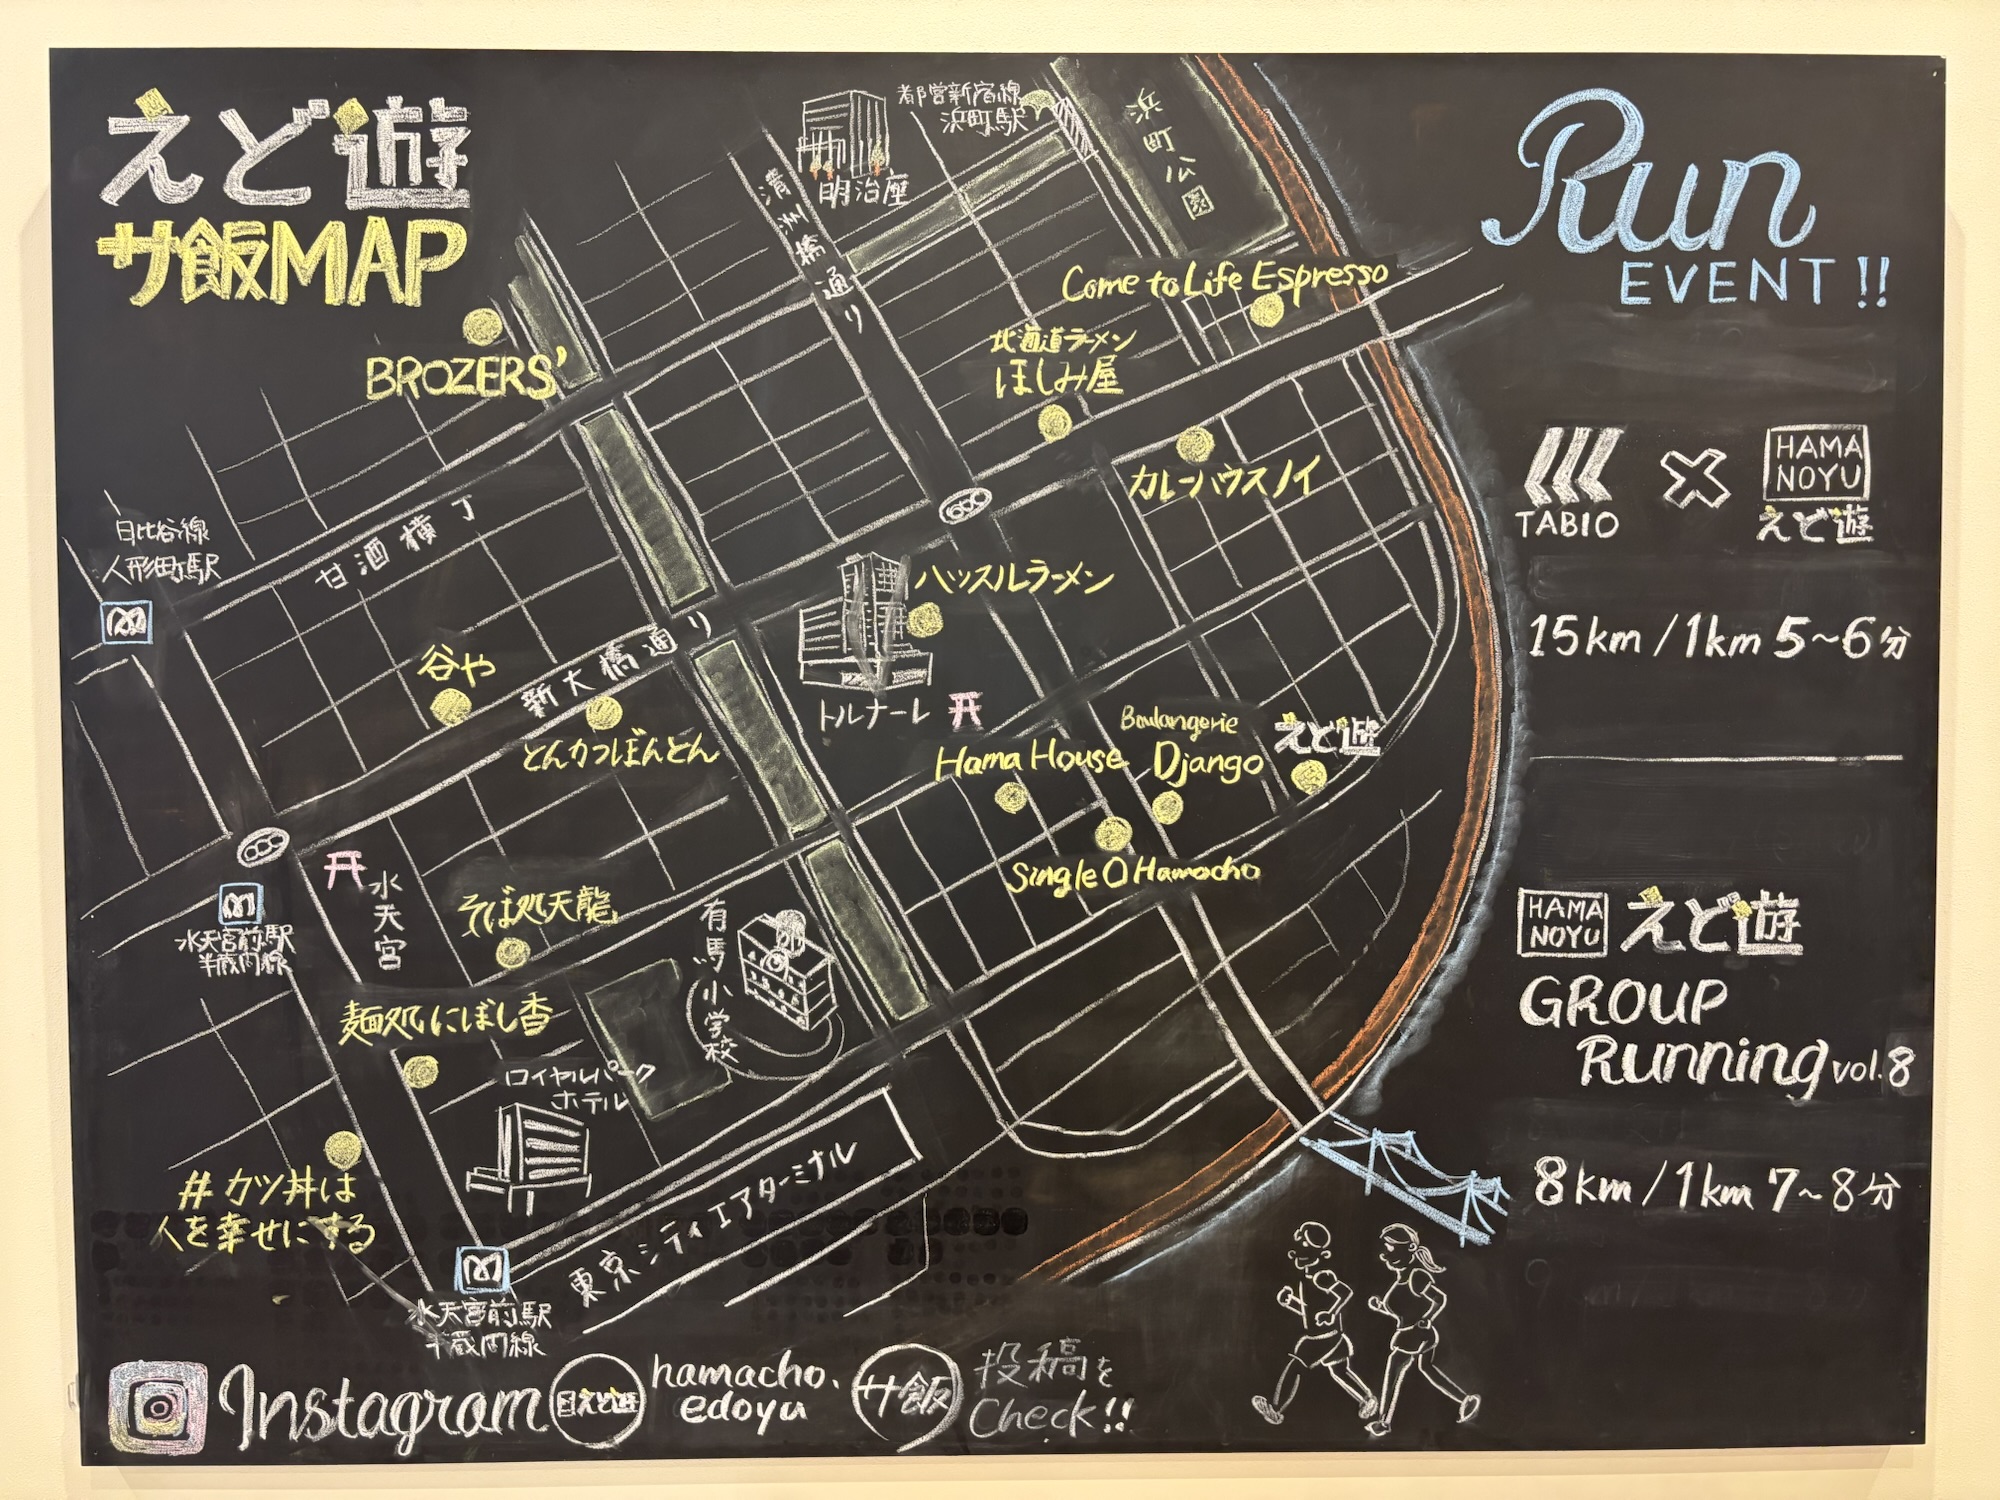 えど遊
サ飯MAP
都営新宿線
浜町駅
明治座
浜町公園
清洲橋通り
Come to Life Espresso
BROZERS'
北海道ラーメン
ほしみ屋
カレーハウスノイ
日比谷線
人形町駅
甘酒横丁
ハッスルラーメン
谷や
新大橋通り
とんかつぼんとん
トルナーレ
Hama House
Boulangerie
Django
えど遊
Single O Hamacho
水天宮
水天宮前駅
半蔵門線
そば処天龍
有馬小学校
麺処にぼし香
ロイヤルパーク
ホテル
#カツ丼は
人を幸せにする
東京シティエアターミナル
水天宮前駅
半蔵門線
Instagram
えど遊
hamacho.
edoyu
サ飯
投稿を
Check!!
Run
EVENT!!
TABIO
HAMA
NOYU
えど遊
15km/1km 5~6分
HAMA
NOYU
えど遊
GROUP
Running vol.8
8km/1km 7~8分